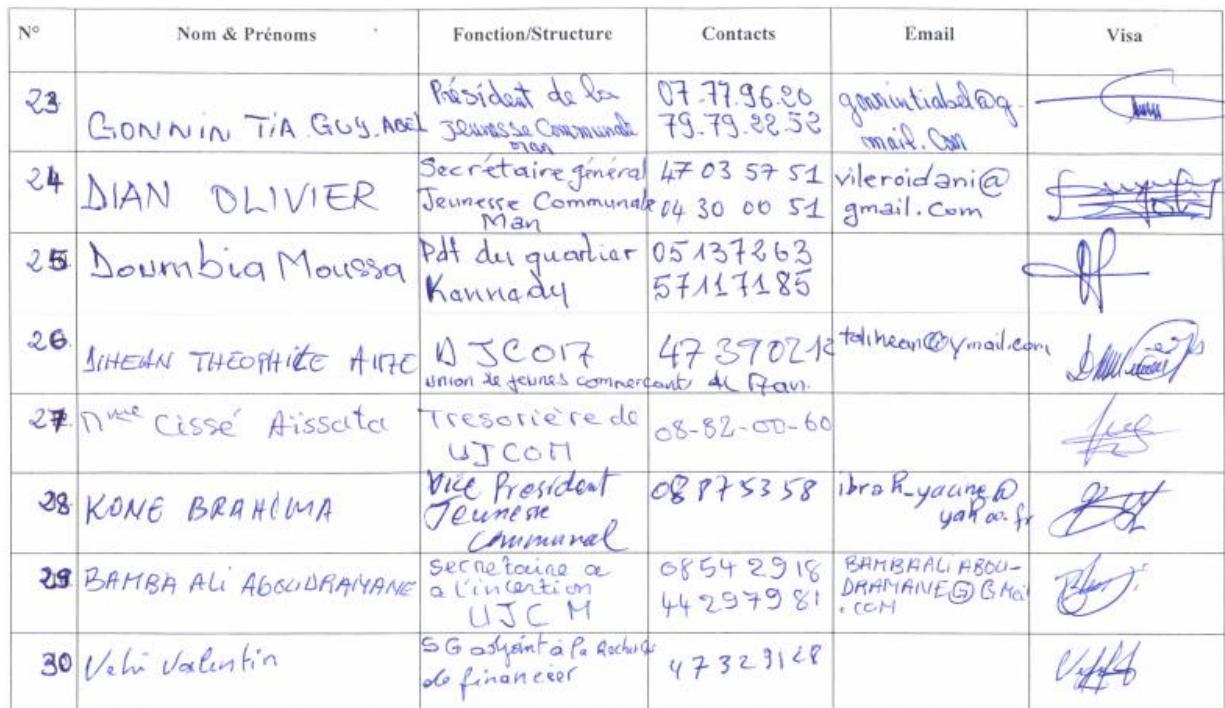 N° Nom & Prénoms Fonction/Structure Contacts Email Visa
23 GONNIN TIA GUY ABEL Président de la Jeunesse Communale Man 07.77.96.20 79.79.22.52 gonnintiabel@gmail.Com
24 DIAN OLIVIER Secrétaire général Jeunesse Communale Man 47 03 57 51 04 30 00 51 vileroidani@gmail.com
25 Doumbia Moussa Pdt du quartier Kennady 05137263 57117185
26 THEOPHILE UJCOM union de jeunes commerçants de Man. 47390212
27 Mme Cissé Aïssata Tresorière de UJCOM 08-82-00-60
28 KONE BRAHIMA Vice President Jeunesse Communal 08875358 ibrah_yacine@yahoo.fr
29 BAMBA ALI ABOUDRAMANE secretaire a a l'incertion UJCM 08542918 44297981 BAMBAALIABOU-DRAMANE@GMail.COM
30 Valentin SG adjoint à la de financier